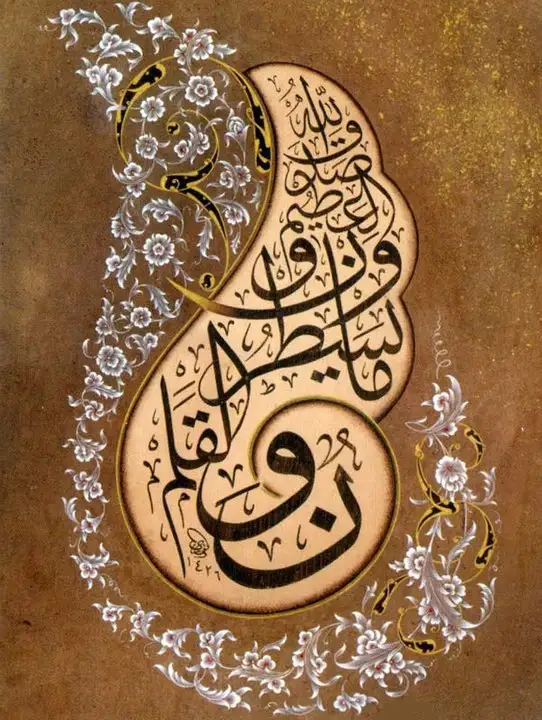 ن وَ
القَلَمِ
وما يسطرون
صدق الله
العظيم
١٤٢٦